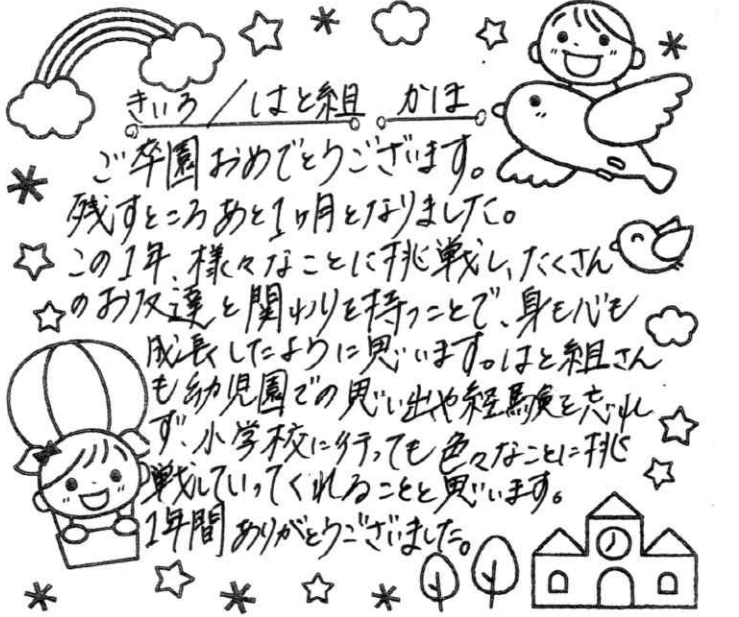 きいろ／はと組 かほ
ご卒園おめでとうございます。
残すところあと1ヶ月となりました。
この1年、様々なことに挑戦し、たくさん
のお友達と関わりを持つことで、身も心も
成長したように思います。はと組さん
も幼児園での思い出や経験を忘れ
ず、小学校に行っても色々なことに挑
戦していってくれることと思います。
1年間ありがとうございました。